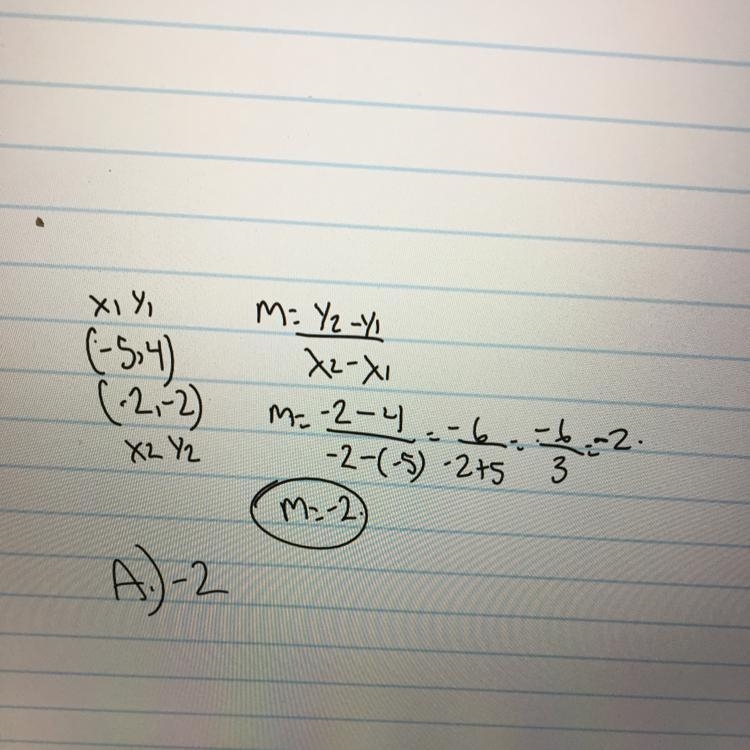 x1 y1
(-5,4)
(-2,-2)
x2 y2
m= y2-y1 / x2-x1
m= -2-4 / -2-(-5) = -6 / -2+5 = -6 / 3 = -2.
m=-2.
A.) -2